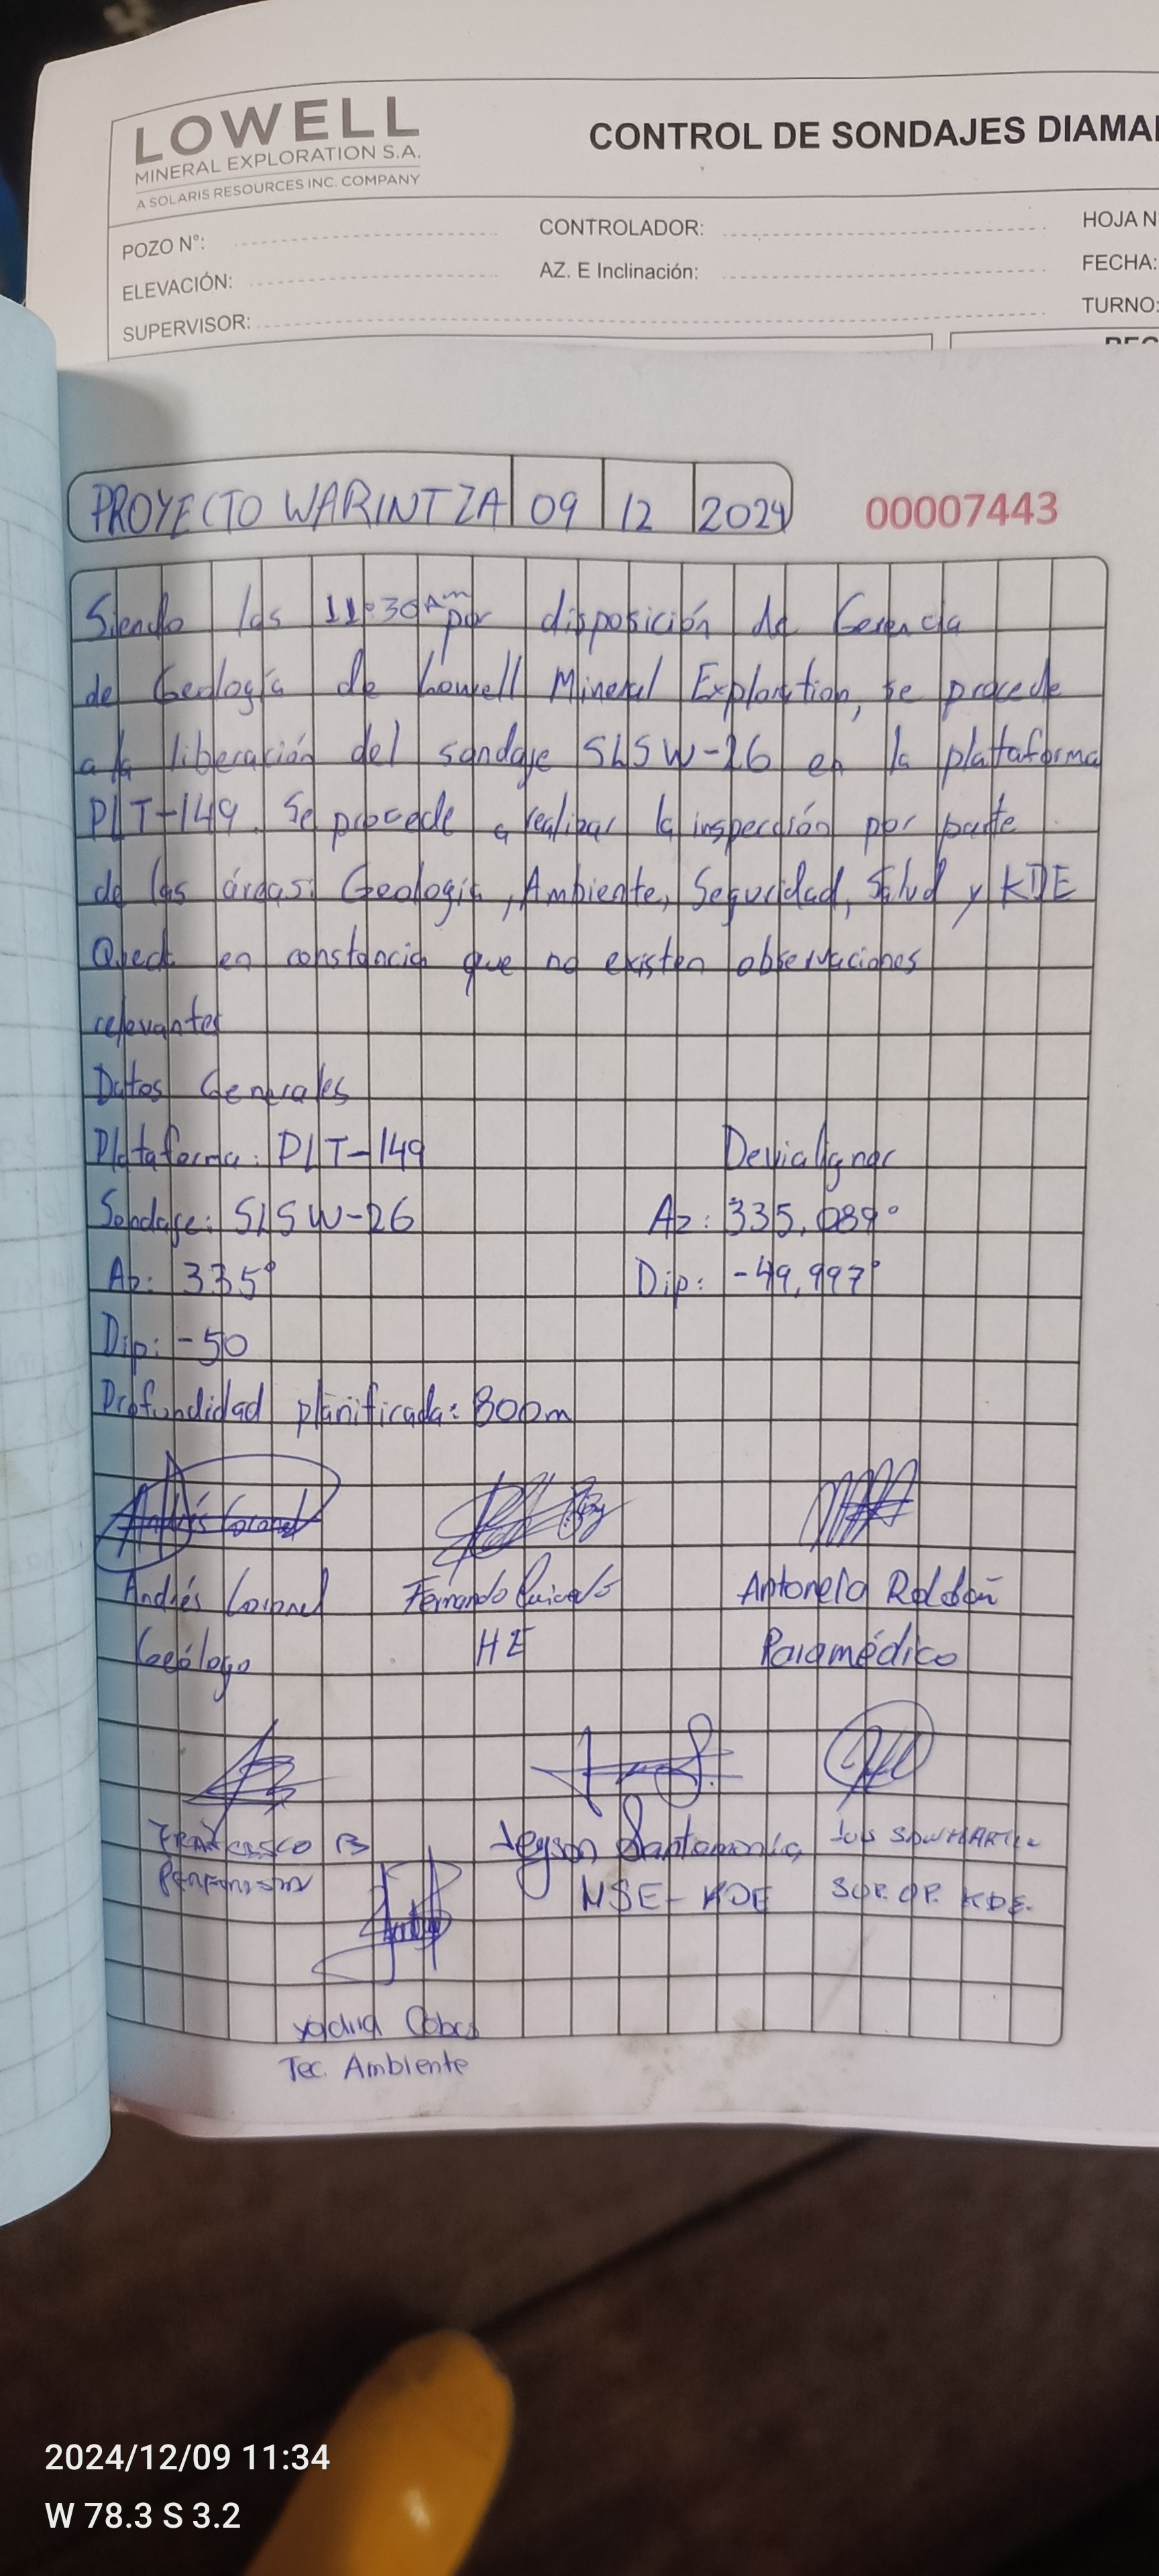 LOWELL
MINERAL EXPLORATION S.A.
A SOLARIS RESOURCES INC. COMPANY
CONTROL DE SONDAJES DIAMA
POZO N°:
CONTROLADOR:
HOJA N
ELEVACIÓN:
AZ. E Inclinación:
FECHA:
SUPERVISOR:
TURNO:
PROYECTO WARINTZA 09 12 2024
00007443
Siendo las 11:30 Am por disposición de Gerencia
de Geología de Lowell Mineral Exploration, se procede
a la liberación del sondaje SLSW-26 en la plataforma
PLT-149. Se procede a realizar la inspección por parte
de las áreas: Geología, Ambiente, Seguridad, Salud y KDE
Queda en constancia que no existen observaciones
relevantes
Datos Generales
Plataforma: PLT-149
Devialigner
Sondaje: SLSW-26
Az: 335,089°
Az: 335°
Dip: -49,997°
Dip: -50
Profundidad planificada: 800m
Andrés Coronel
Fernando
Antonela Roldán
Geólogo
HE
Paramédico
Francisco B
Jeyson Santamaria
Luis
HSE-KDE
SUP. OP. KDE.
Yadira Cobos
Tec. Ambiente
2024/12/09 11:34
W 78.3 S 3.2